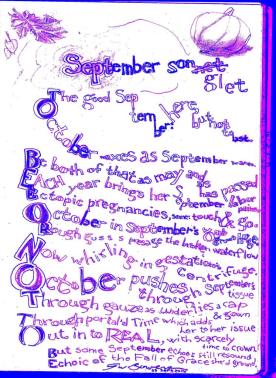 September sonnet
giet
The good Sep
tem
ber: here, but not to last.
October waxes as September wanes.
Be both of that as may and as has passed
Each year brings her September labor pains,
Ectopic pregnancies, some: touch & go.
October in September's
Rough presage the broken waterflow
Now whirling in gestation's centrifuge.
October pushes in September's
Through gauze as through tissue
cap & gown
Through portal'd Time which adds her to her issue
Out in to REAL, with scarcely time to crown.
But some September echoes still resound,
Echoic of the Fall of Grace she'd ground.
TO BE OR NOT TO